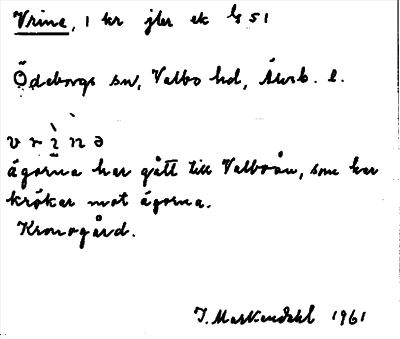 Vrine, 1 kr jbr ek bl 51
Ödeborgs sn, Valbo hd, Älvsb. l.
vrìnə
ägorna har gått till Valboån, som har
krökar mot ägorna.
Kronogård.
J. Markendahl 1961